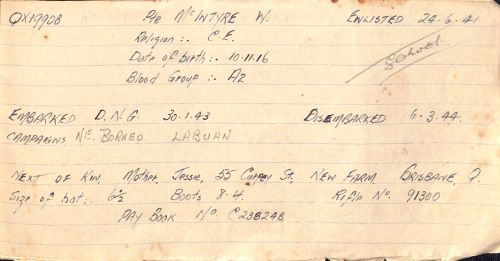 QX19908 Pte McINTYRE W. ENLISTED 24.6.41
Religion :. C.E. School
Date of birth :. 10.11.16
Blood Group :. A2
EMBARKED D.N.G. 30.1.43 DISEMBARKED 6.3.44.
CAMPAIGNS NE. BORNEO LABUAN
NEXT OF KIN, Mother, Jessie, 55 St. NEW FARM BRISBANE, Q.
Size of hat :. 6½ Boots 8.4. Rifle No. 91300
PAY BOOK No. C238248